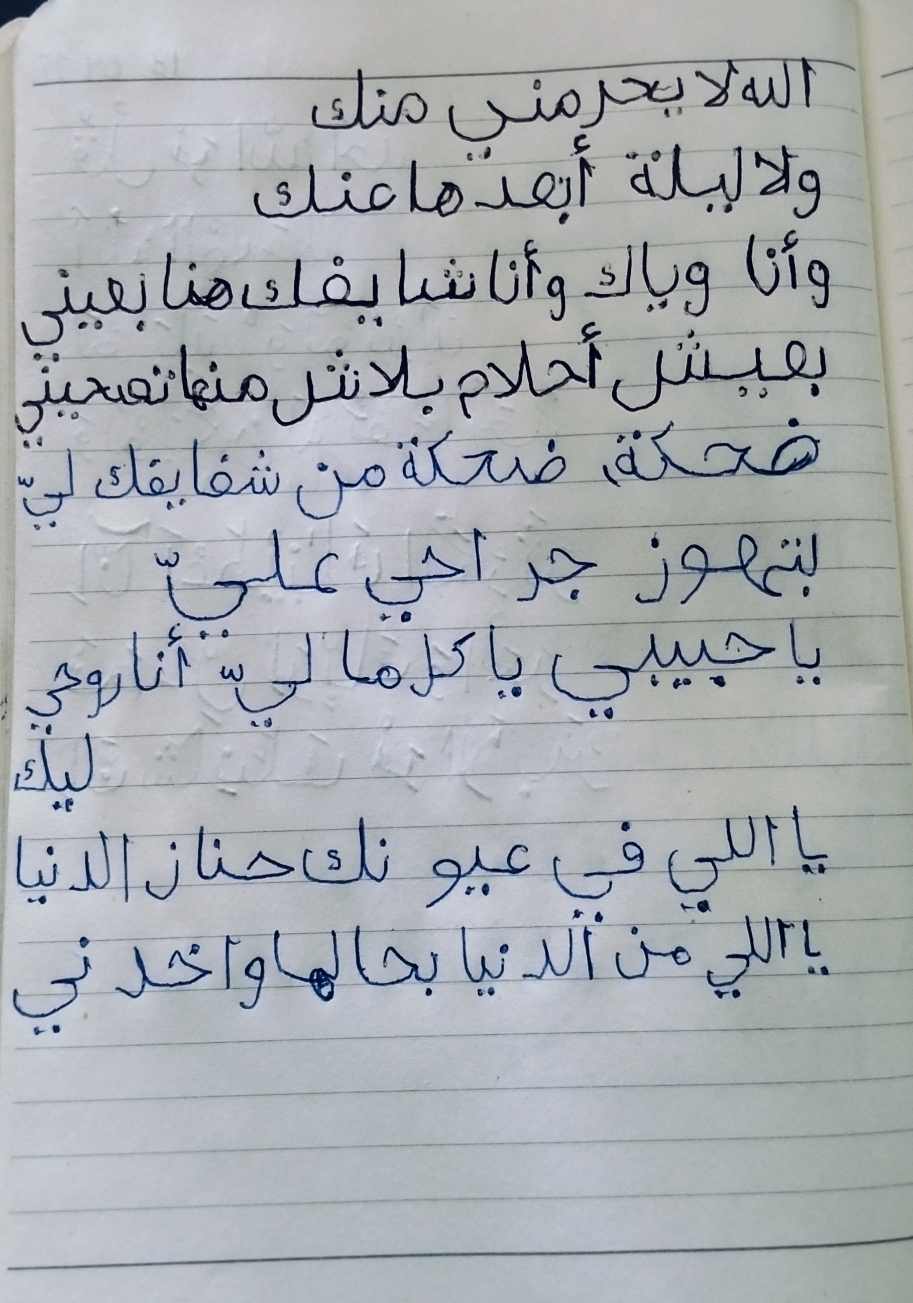 الله لا يحرمني منك
ولا ليلة أبعدها عنك
وأنا وياك وأنا شايفك هنا بعيني
بعيش أحلام بلاش منها تصحيني
ضحكة، ضحكة من شفايفك ليّ
بتهون جراحي عليّ
يا حبيبي يا كل ما ليّ أنا روحي
ليك
يا اللي في عيونك حنان الدنيا
يا اللي من الدنيا بحالها واخدني